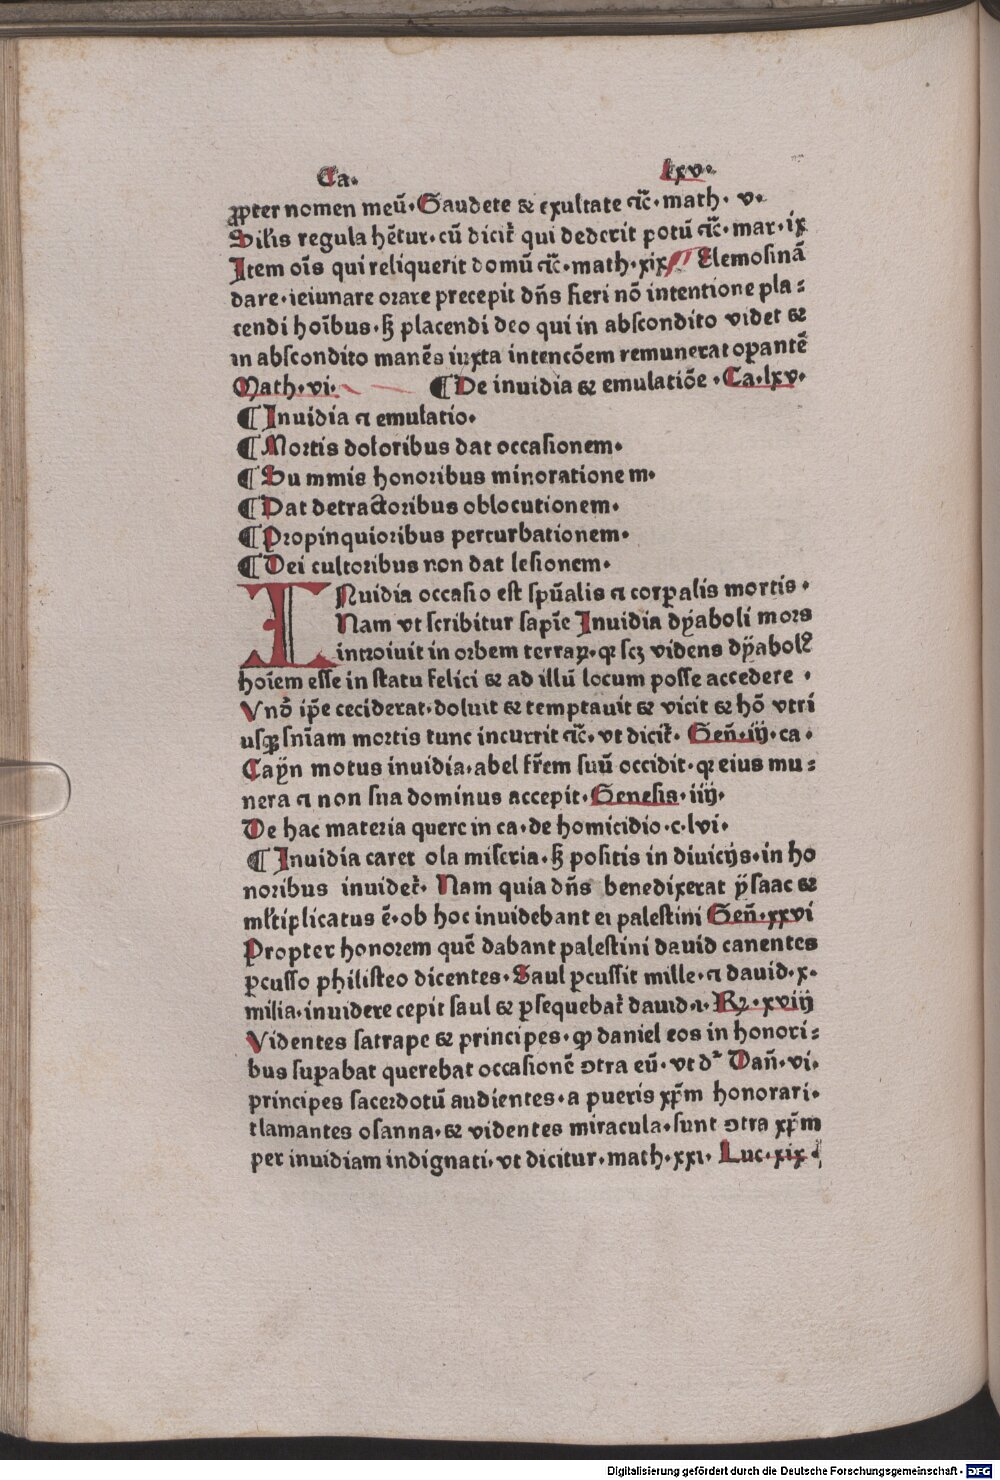 Ca. lxv.
ꝓpter nomen meū. Gaudete ⁊ exultate ⁊c̄. math. v.
Silis regula hēt̄ur. cū dicit̄ qui dederit potū ⁊c̄. mar. ix
Item oīs qui reliquerit domū ⁊c̄. math. xix Elemosinā
dare. ieiunare orare precepit dn̄s fieri nō intentione pla⸗
cendi hoībus. ꝫ placendi deo qui in abscondito videt ⁊
in abscondito manēs iuxta intencōem remunerat oꝑantē
Math. vi. ¶ De inuidia ⁊ emulatiōe. Ca. lxv.
¶ Inuidia ⁊ emulatio.
¶ Mortis doloribus dat occasionem.
¶ Su mmis honoribus minoratione m.
¶ Dat detractoribus oblocutionem.
¶ Propinquioribus perturbationem.
¶ Dei cultoribus non dat lesionem.
INuidia occasio est spūalis ⁊ corꝑalis mortis.
Nam vt scribitur sapīe Inuidia dÿaboli mors
introiuit in orbem terraꝝ. qꝛ scꝫ videns dÿabolꝰ
hoīem esse in statu felici ⁊ ad illū locum posse accedere.
Vnō ip̄e ceciderat. doluit ⁊ temptauit ⁊ vicit ⁊ hō vtri
usqꝫ sn̄iam mortis tunc incurrit ⁊c̄. vt dicit̄. Gen̄. iij. ca.
Caÿn motus inuidia. abel fr̄em suū occidit. qꝛ eius mu⸗
nera ⁊ non sua dominus accepit. Genesis. iiij.
De hac materia quere in ca. de homicidio. c. lvi.
¶ Inuidia caret ola miseria. ꝫ positis in diuicijs. in ho
noribus inuidet̄. Nam quia dn̄s benedixerat ÿsaac ⁊
ml̄tiplicatus ē. ob hoc inuidebant ei palestini Gen̄. xxvi
Propter honorem quē dabant palestini dauid canentes
ꝑcusso philisteo dicentes. Saul ꝑcussit mille. ⁊ dauid. x.
milia. inuidere cepit saul ⁊ ꝑsequebat̄ dauid. 1. Rꝫ. xviij
Videntes satrape ⁊ principes. ꝙ daniel eos in honori⸗
bus suꝑabat querebat occasionē ↄtra eū. vt dꝛ Dan̄. vi.
principes sacerdotū audientes. a pueris xp̄m honorari.
clamantes osanna. ⁊ videntes miracula. sunt ↄtra xp̄m
per inuidiam indignati. vt dicitur. math. xxi. Luc. xix.
Digitalisierung gefördert durch die Deutsche Forschungsgemeinschaft - DFG